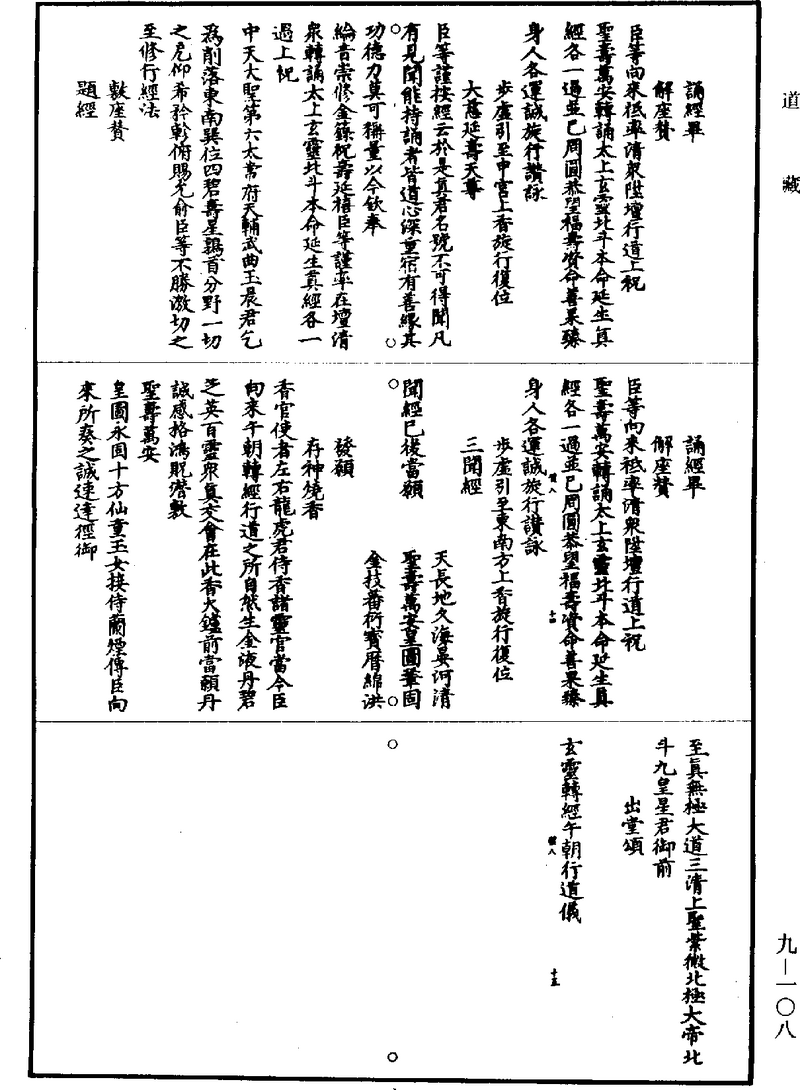 道藏
誦經畢
解座贊
臣等向來祗率清衆陞壇行道上祝
聖壽萬安轉誦太上玄靈北斗本命延生真
經各一過並已周圓恭望福壽資命善果臻
身人各運誠旋行讚詠
步虛引至中宮上香旋行復位
大慈延壽天尊
臣等謹按經云於是真君名號不可得聞凡
有見聞能持誦者皆道心深重宿有善緣其
功德力莫可稱量以今欽奉
綸音崇修金籙祝壽延禧臣等謹率在壇清
衆轉誦太上玄靈北斗本命延生真經各一
過上祝
中天大聖第六太常府天輔武曲玉晨君乞
爲削落東南巽位四碧壽星鶉首分野一切
之厄仰希矜軫俯賜允俞臣等不勝激切之
至修行經法
敷座贊
題經
誦經畢
解座贊
臣等向來祗率清衆陞壇行道上祝
聖壽萬安轉誦太上玄靈北斗本命延生真
經各一過並已周圓恭望福壽資命善果臻
身人各運誠旋行讚詠
步虛引至東南方上香旋行復位
三聞經
天長地久海晏河清
聞經已後當願 聖壽萬安皇圖鞏固
金枝蕃衍寶曆綿洪
發願
存神燒香
香官使者左右龍虎君侍香諸靈官當令臣
向來午朝轉經行道之所自然生金液丹碧
芝英百靈衆真交會在此香火爐前當願丹
誠感格鴻貺潛敷
聖壽萬安
皇圖永固十方仙童玉女接侍蘭煙傳臣向
來所奏之誠速達徑御
至真無極大道三清上聖紫微北極大帝北
斗九皇星君御前
出堂頌
玄靈轉經午朝行道儀
十四
十五
九—一〇八